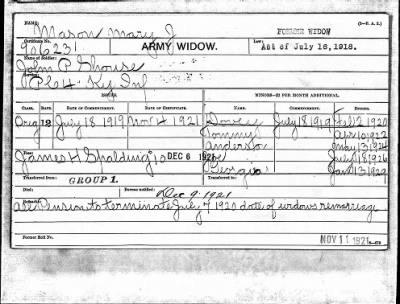 NAME: Mason Mary J. FORMER WIDOW (3-U. S. A.)
Certificate No. 906231 ARMY WIDOW. Law: Act of July 16, 1918.
Name of Soldier: John P. Shouse
Pvt Co H Ky Inf
ISSUES. MINORS—$2 PER MONTH ADDITIONAL.
CLASS. RATE. DATE OF COMMENCEMENT. DATE OF CERTIFICATE. NAME. COMMENCING. ENDING.
Orig 12 July 18 1919 Nov 4 1921 Dovey July 18 1919 Feb 12 1920
Tommy Apr 10 1922
Anderson May 13 1924
July 18 1926
James H Spalding $10 DEC 6 Georgia Jan 13 1929
Transferred from: GROUP 1. Transferred to:
Died: Bureau notified: Dec 9, 1921
all Pension to terminate July 7 1920 date of widows remarriage
Former Roll No. NOV 11 1921